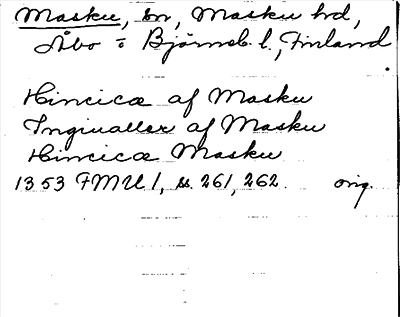 Masku, sn, Masku hd,
Åbo o Björneb. l., Finland.
Hincica af Masku
Ingiualler af Masku
Hincica Masku
1353 FMU 1, ss. 261, 262. orig.